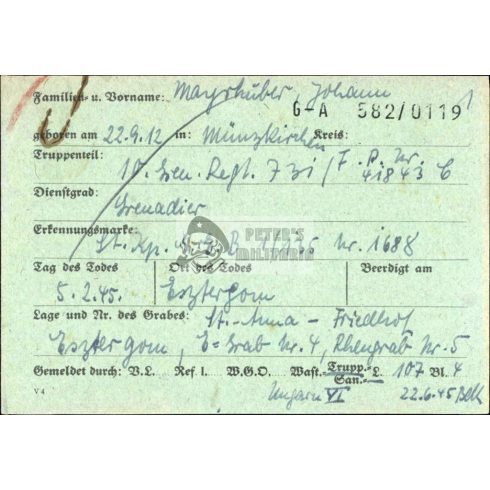 Familien- u. Vorname: Mayrhuber, Johann
G-A 582/0119
geboren am 22.9.12 in: Münzkirchen Kreis:
Truppenteil: 10. Gren. Regt. 731 / F. P. Nr. 41843 C
Dienstgrad:
Grenadier
Erkennungsmarke:
St. Kp. Nr. 1688
PETER'S MILITARIA
Tag des Todes Ort des Todes Beerdigt am
5.2.45. Esztergom
Lage und Nr. des Grabes: St.-Anna - Friedhof
Esztergom, E=Grab Nr. 4, Reihengrab Nr. 5
Gemeldet durch: V.L. Ref I. W.G.O. Wast.- Trupp.- San.- L. 107 Bl. 4
V 4 Ungarn VI 22.6.45